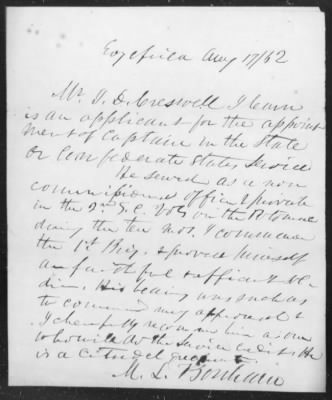 Edgefield Aug 17/62
Mr. D. D. Creswell I learn
is an applicant for the appoint
ment of Captain in the State
or Confederate States Service
He served as a non
commissioned officer & private
in the 2d S.C. Vols on the Potomac
during the ten mos. I commanded
the 1st Brig. & proved himself
a faithful & efficient sol
dier. His bearing was such as
to command my approval &
I cheerfully recommend him as one
who will do the service credit. He
is a Citadel graduate
M. L. Bonham